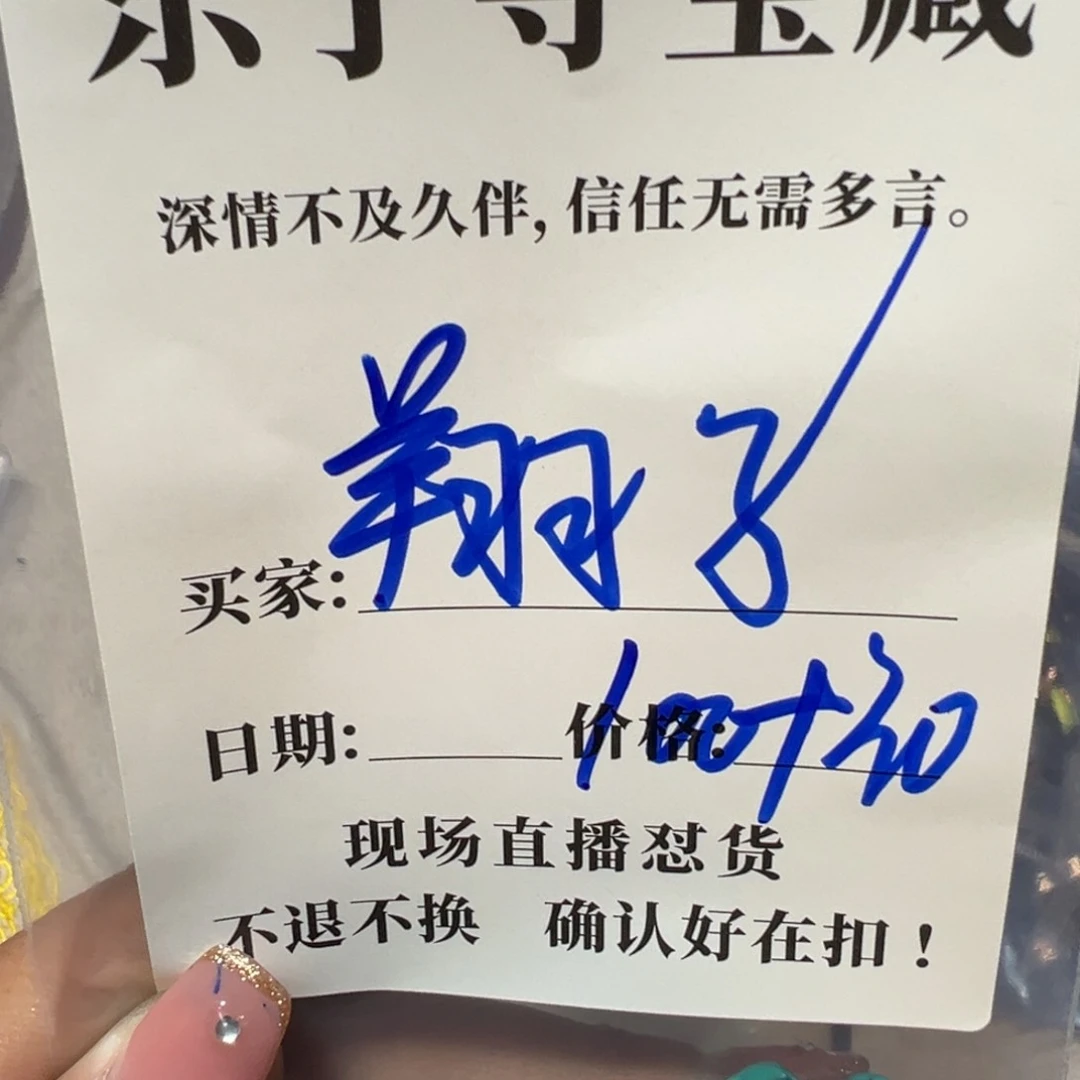 寻宝藏
深情不及久伴,信任无需多言。
买家:翔子
日期: 价格:100+30
现场直播怼货
不退不换 确认好在扣!